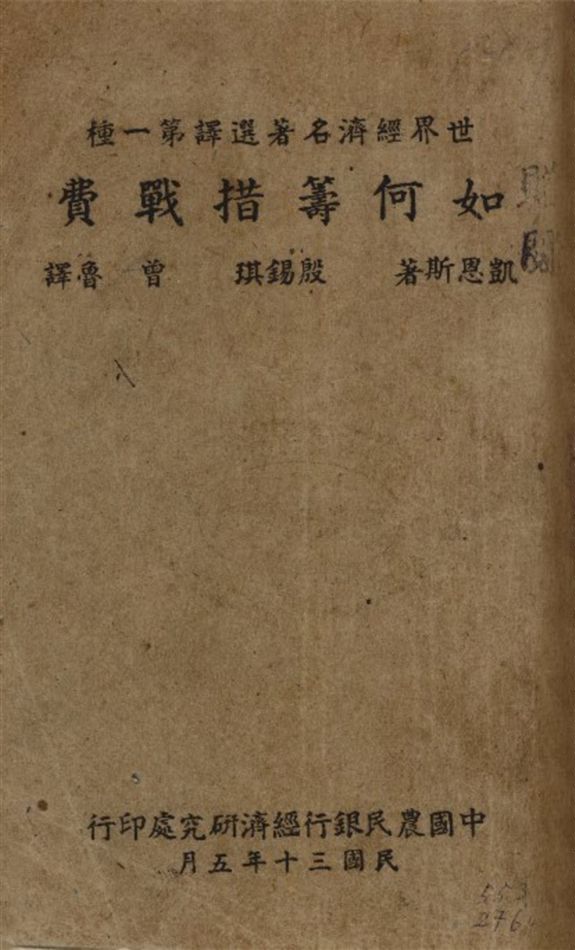 世界經濟名著選譯第一種
如何籌措戰費
凱恩斯著 殷錫琪 曾魯譯
中國農民銀行經濟研究處印行
民國三十年五月